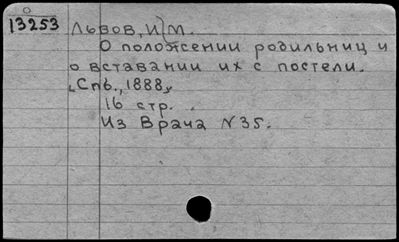 13253 Львов, И. М.
О положении родильниц и
о вставании их с постели.
Спб., 1888,
16 стр.
Из Врача N35.